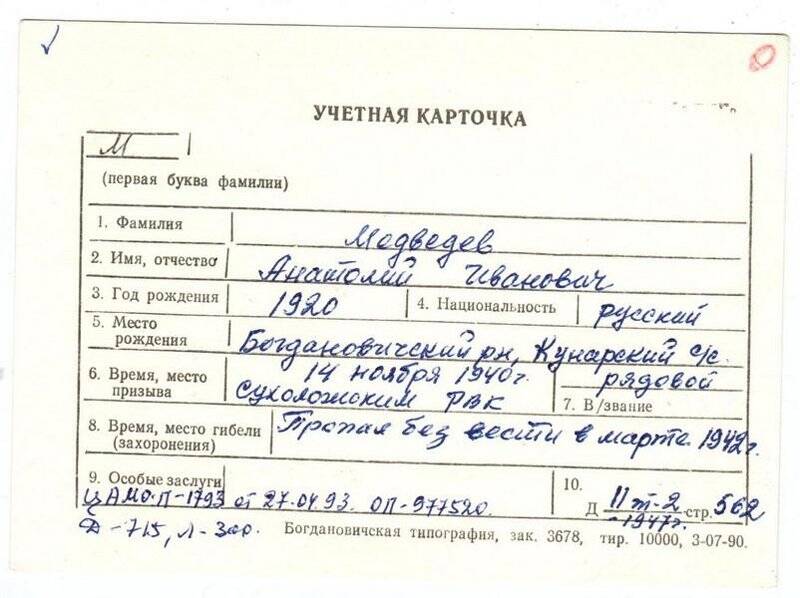 УЧЕТНАЯ КАРТОЧКА
М
(первая буква фамилии)
1. Фамилия Медведев
2. Имя, отчество Анатолий Иванович
3. Год рождения 1920 4. Национальность русский
5. Место рождения Богдановичский рн, Кунарский с/с.
6. Время, место призыва 14 ноября 1940г. Сухоложским РВК
7. В/звание рядовой
8. Время, место гибели (захоронения) Пропал без вести в марте 1942г.
9. Особые заслуги
ЦАМО-П-1793 от 27.04.93. ОП-977520.
Д-715, л-300.
10. Д II т-2 -1947г. стр. 562
Богдановичская типография, зак. 3678, тир. 10000, 3-07-90.